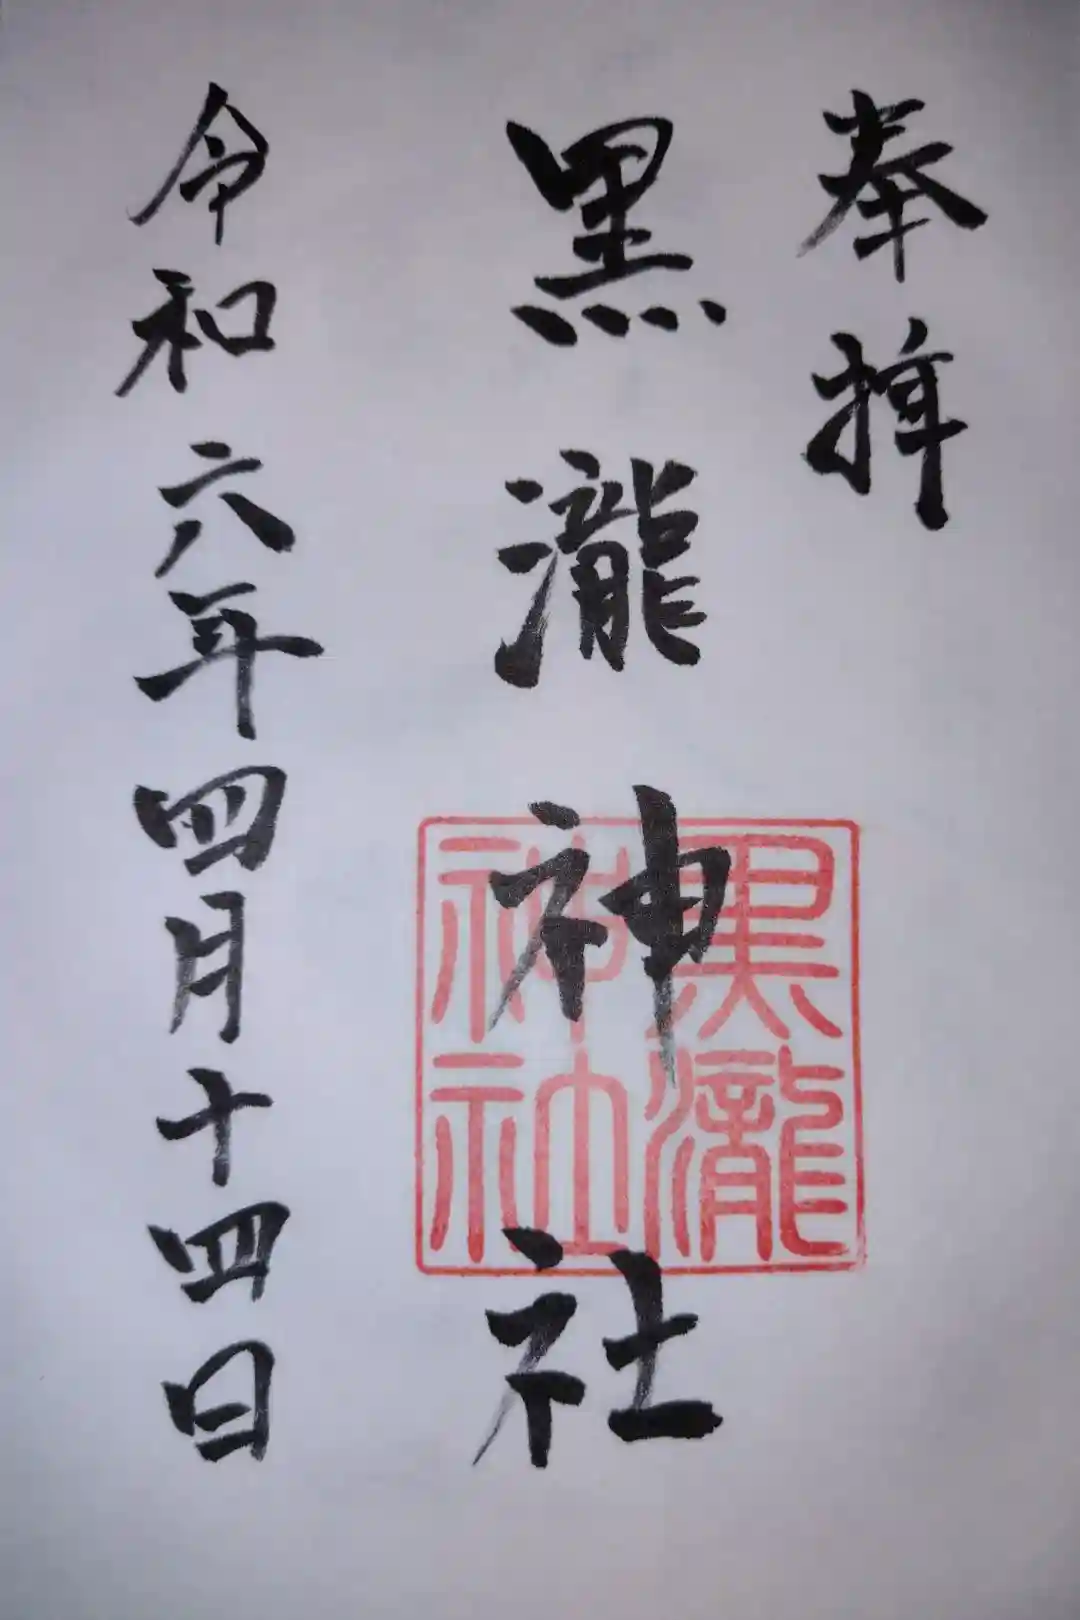 奉拝
黒瀧神社
黒瀧
神社
令和六年四月十四日